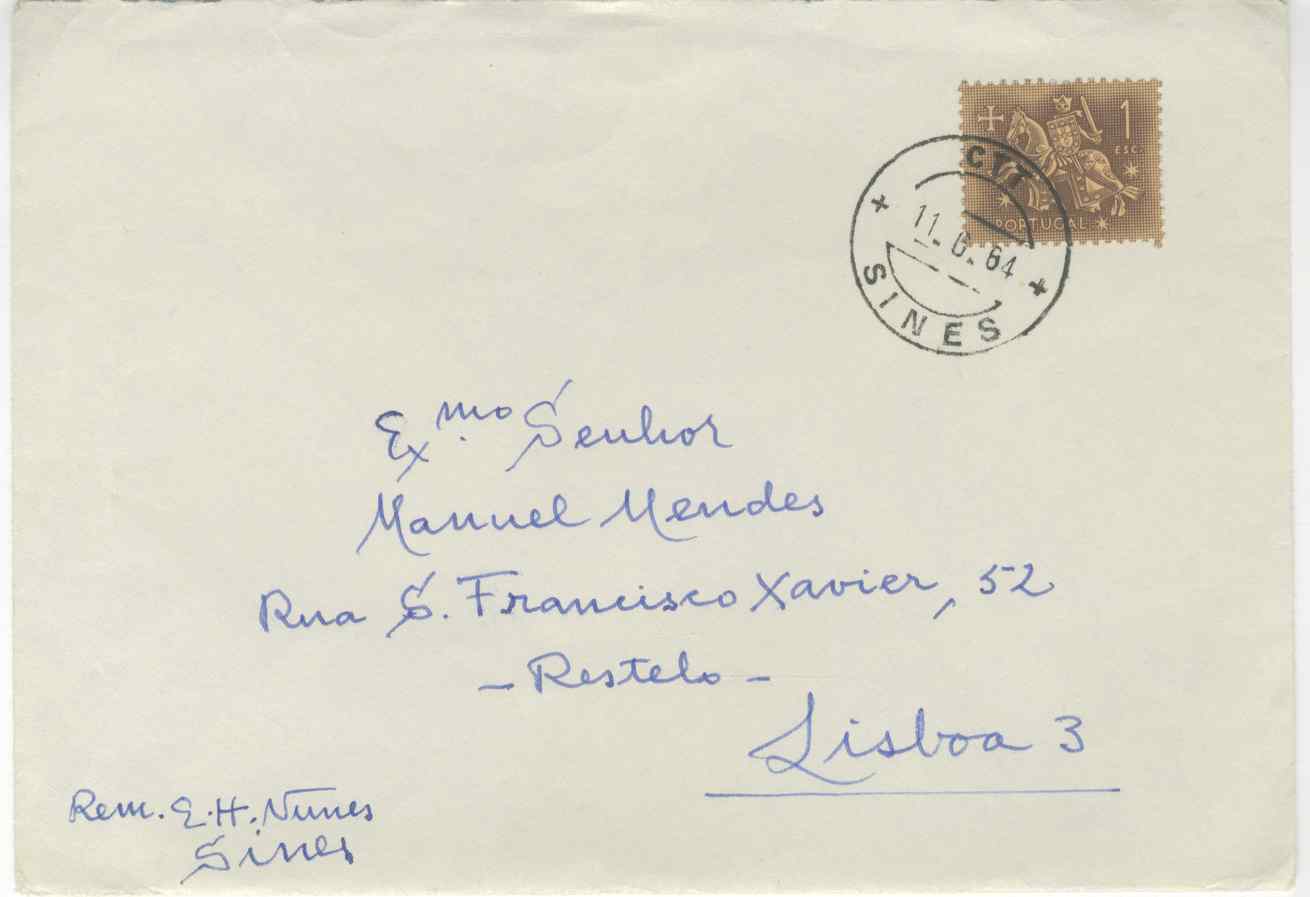 1
ESC.
PORTUGAL
CTT
11.6.64
SINES
Ex.mo Senhor
Manuel Mendes
Rua S. Francisco Xavier, 52
- Restelo -
Lisboa 3
Rem. E.H. Nunes
Sines